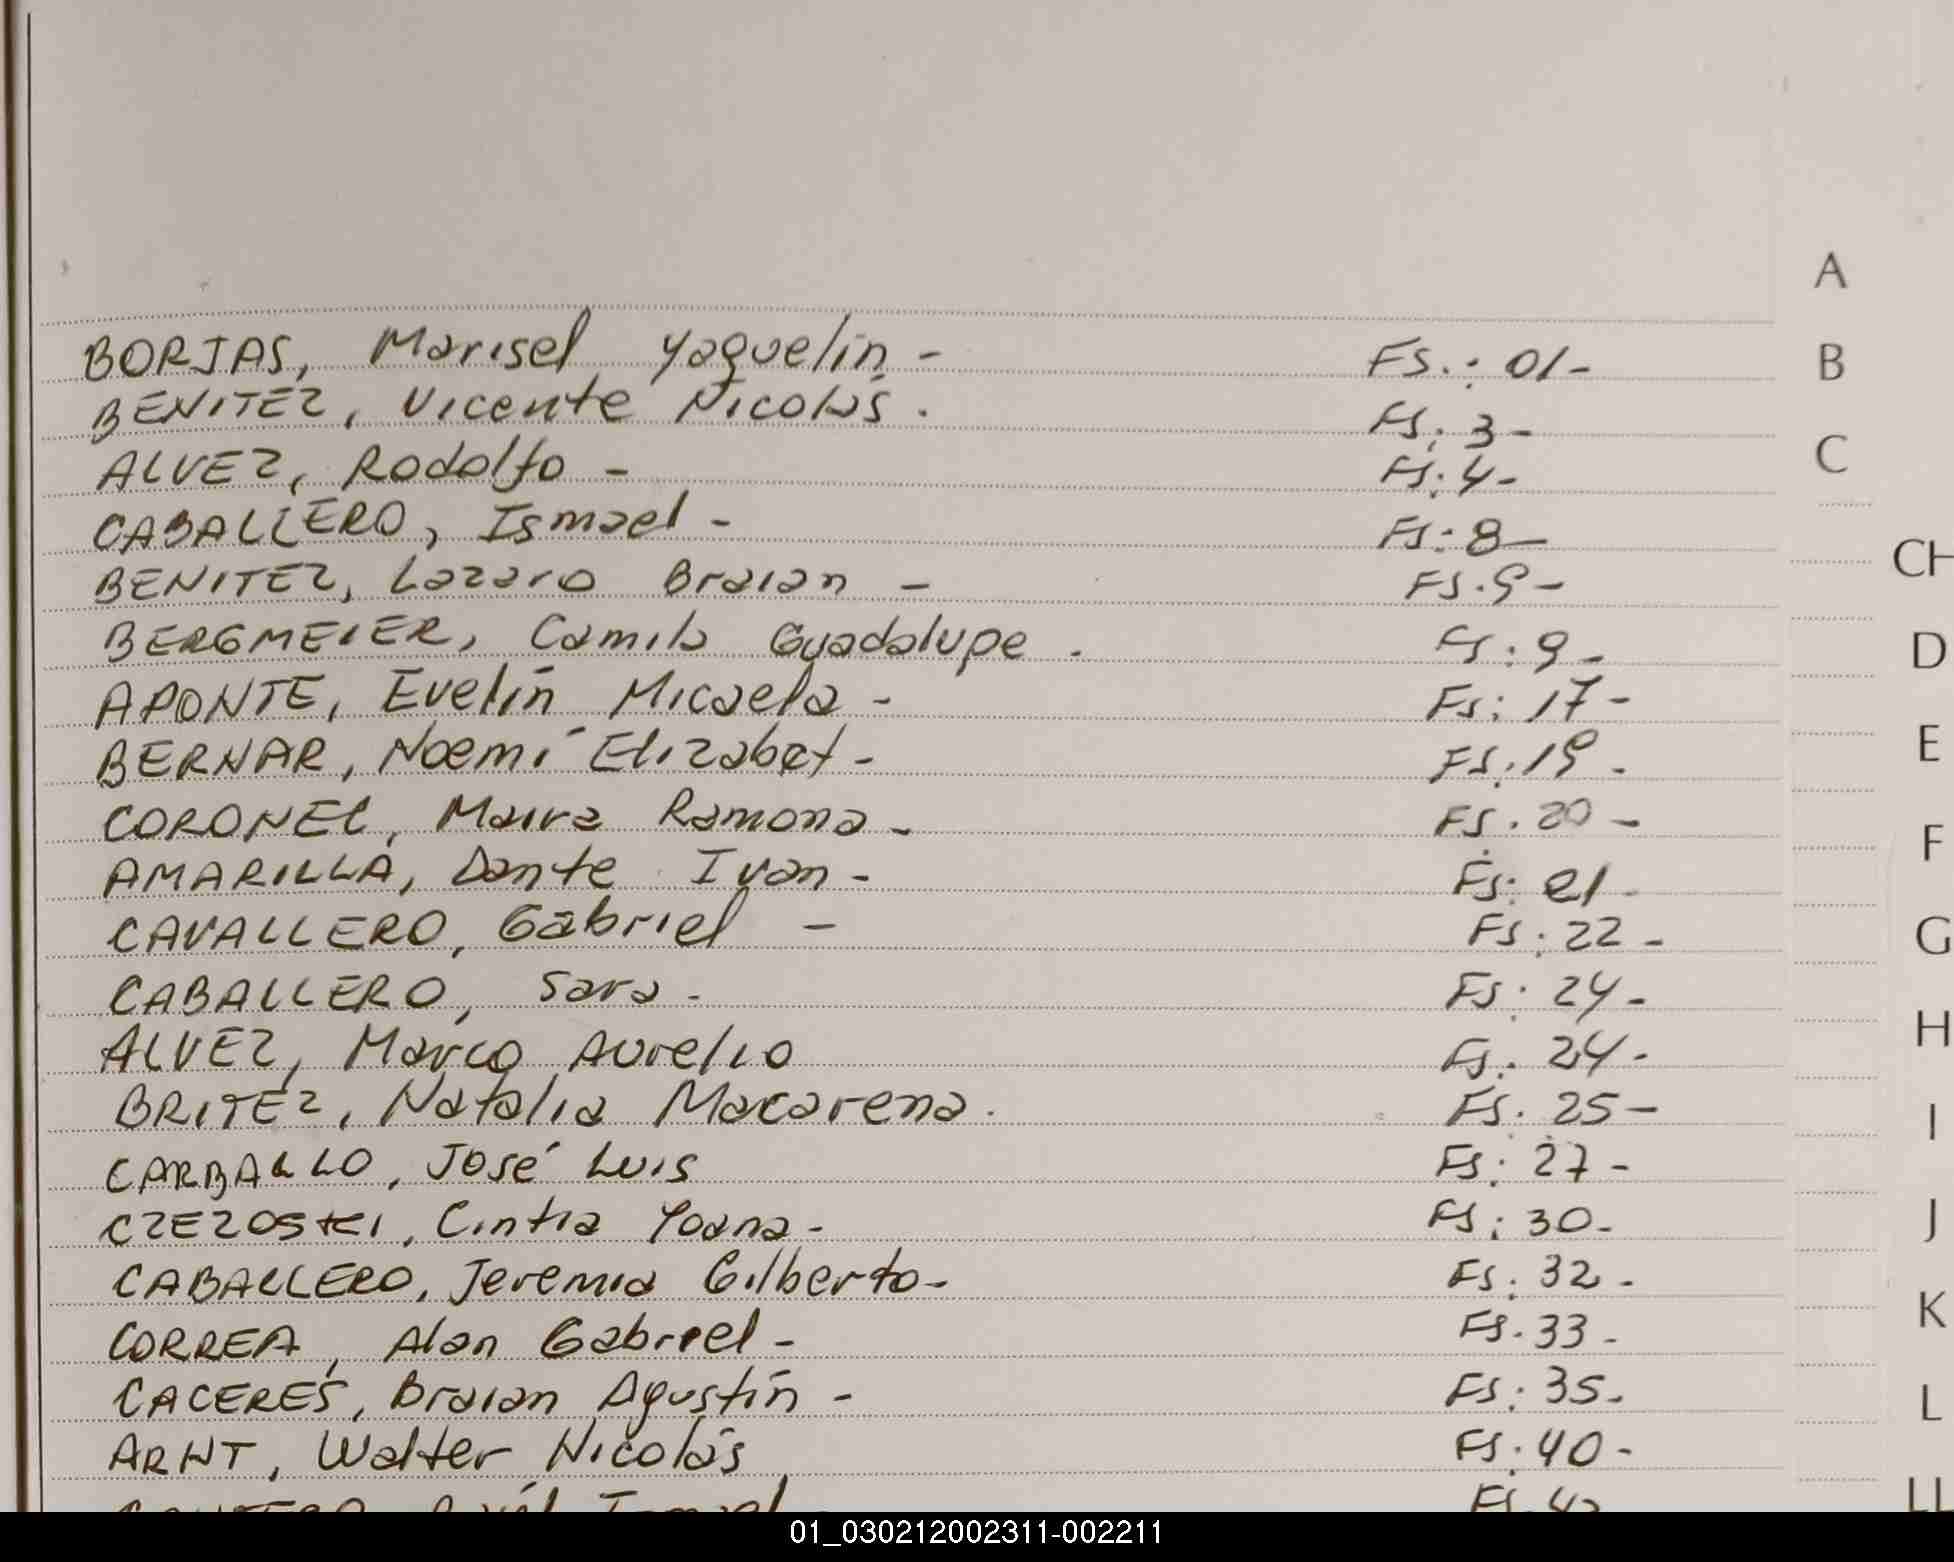 BORJAS, Marisel Yaquelin - FS.: 01-
BENITEZ, Vicente Nicolás. FS: 3-
ALVEZ, Rodolfo - FS: 4-
CABALLERO, Ismael - FS: 8-
BENITEZ, Lazaro Braian - FS. 9-
BERGMEIER, Camila Guadalupe. FS: 9-
APONTE, Evelin Micaela - FS: 17-
BERNAR, Noemí Elizabet - FS: 19.
CORONEL, Maira Ramona - FS. 20-
AMARILLA, Dante Ivan - FS: 21-
CAVALLERO, Gabriel - FS: 22-
CABALLERO, Sara - FS: 24-
ALVEZ, Marco Aurelio FS: 24-
BRITEZ, Natalia Macarena. FS. 25-
CARBALLO, José Luis FS: 27-
CZEZOSKI, Cintia Yoana - FS: 30-
CABALLERO, Jeremia Gilberto - FS: 32-
CORREA, Alan Gabriel - FS. 33-
CACERES, Braian Agustín - FS: 35-
ARNT, Walter Nicolás FS. 40-
A
B
C
CH
D
E
F
G
H
I
J
K
L
LL
01_030212002311-002211